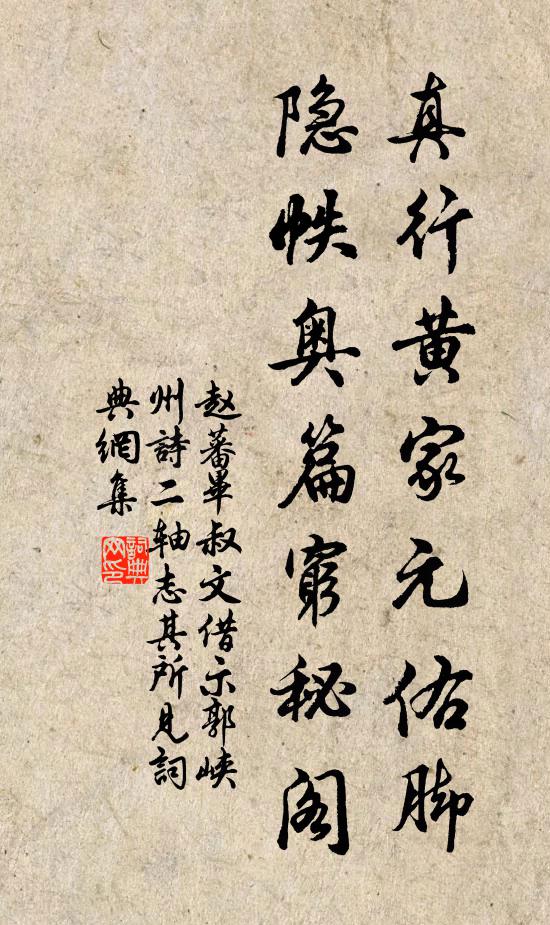 真行黄家元佑脚
隐帙奥篇穷秘阁
赵蕃畢叔文借示郭峡
州詩二轴志其所见詞
典網集
詞典
网印